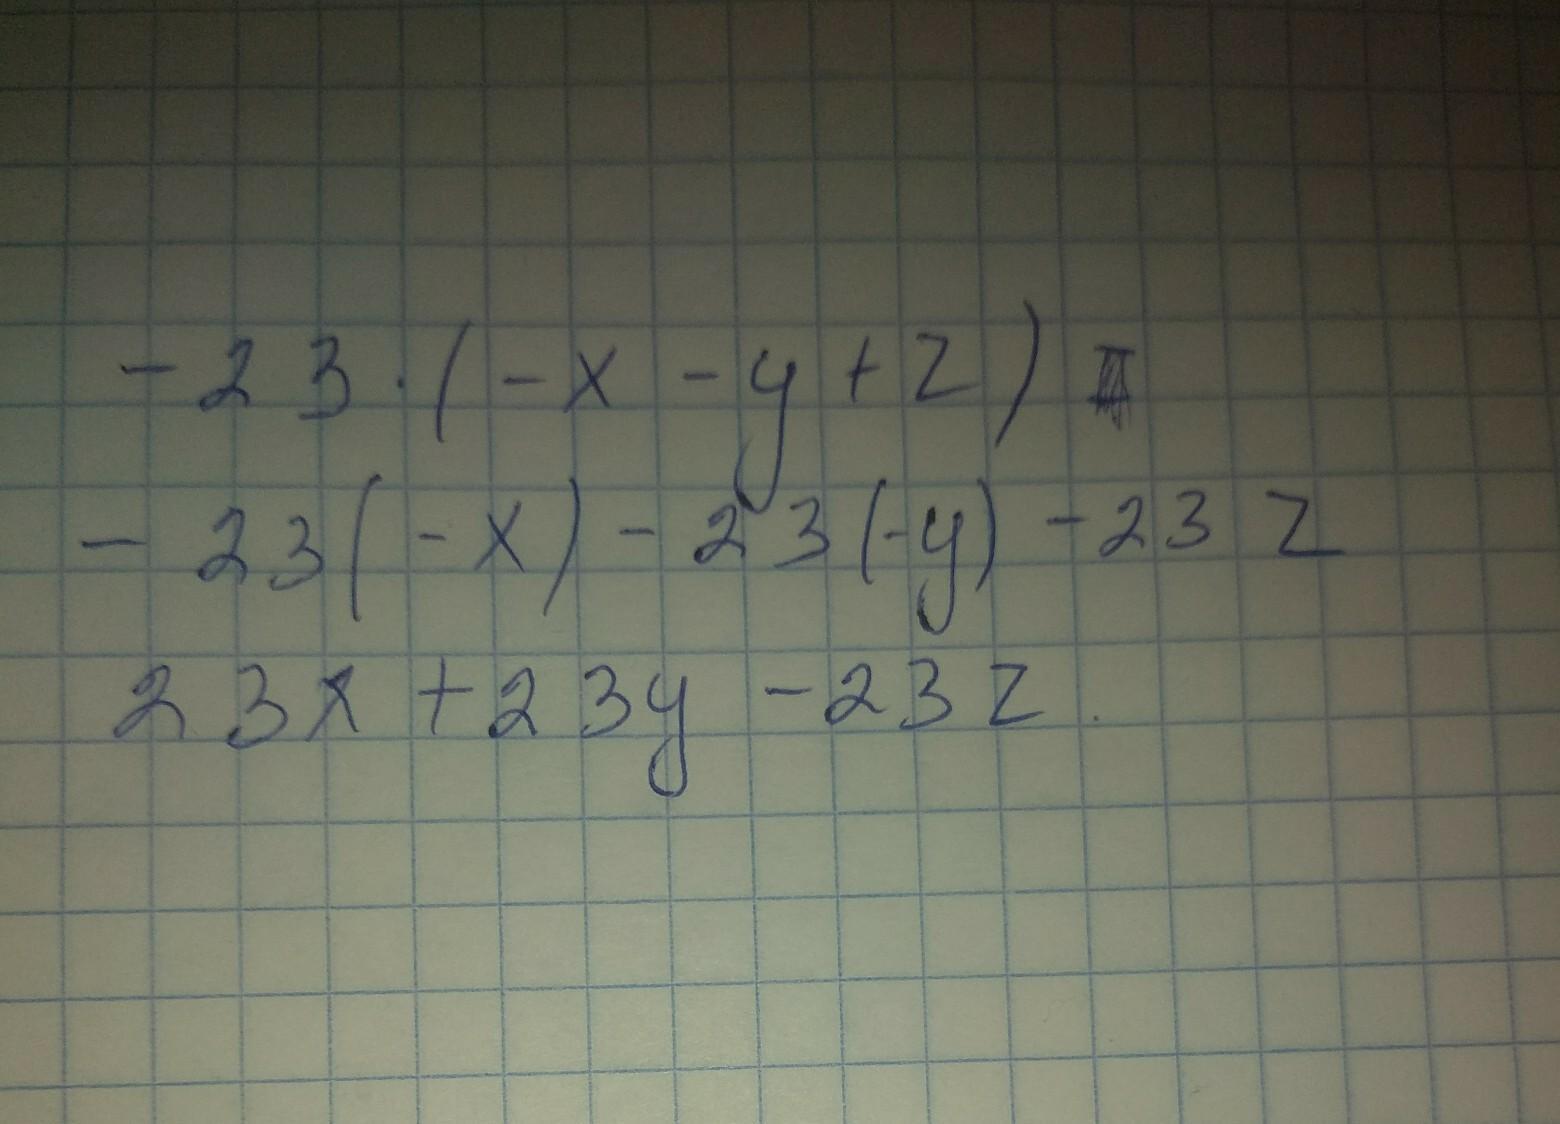 -23·(-x-y+z)
-23(-x)-23(-y)-23z
23x+23y-23z.